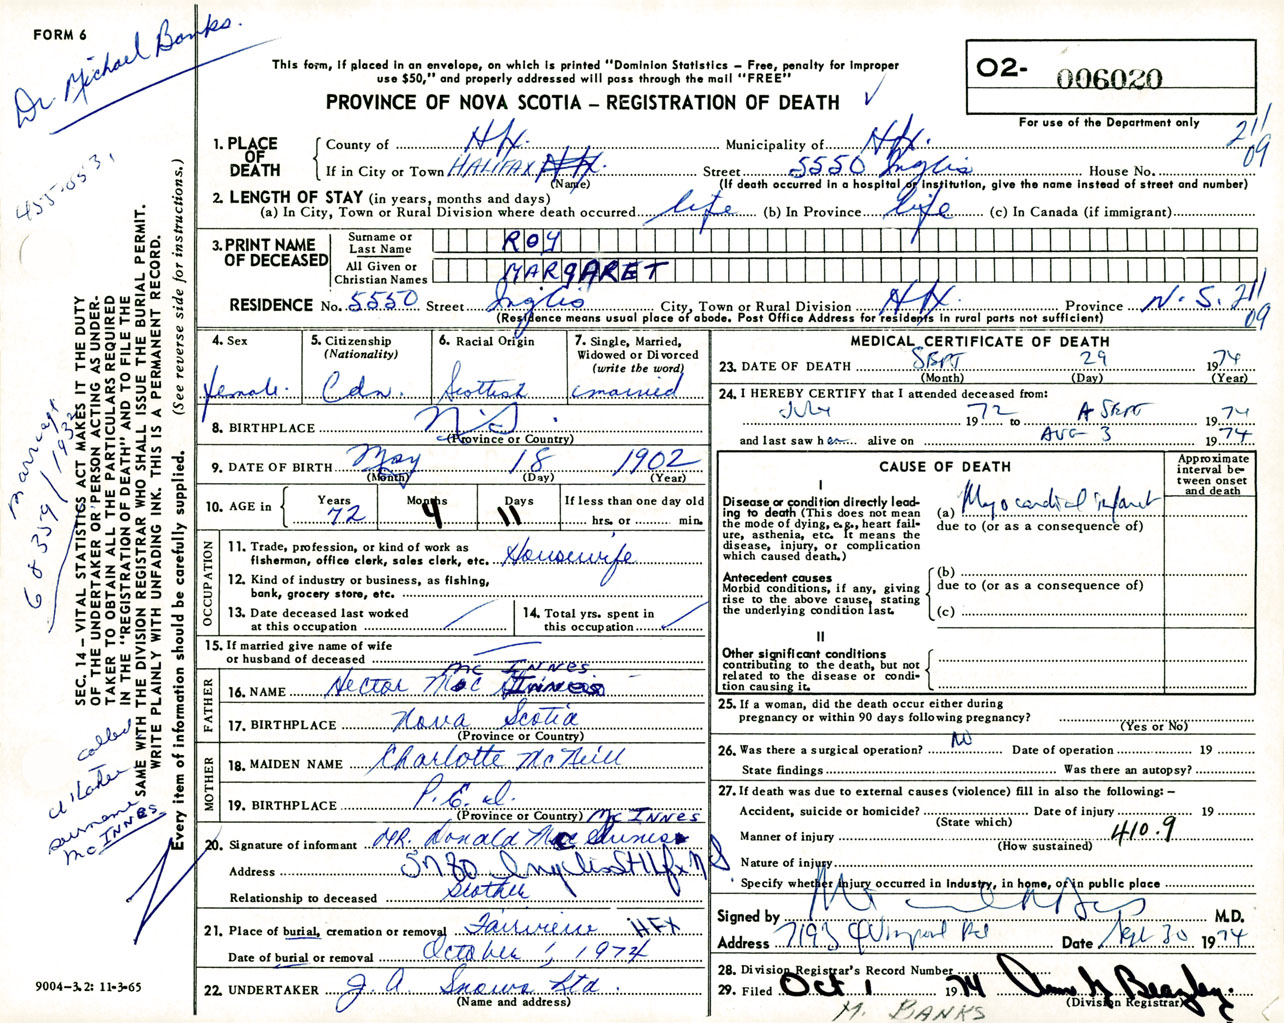 FORM 6
Dr. Michael Banks.
455-0531
This form, if placed in an envelope, on which is printed "Dominion Statistics – Free, penalty for improper
use $50," and properly addressed will pass through the mail "FREE"
PROVINCE OF NOVA SCOTIA – REGISTRATION OF DEATH ✓
02- 006020
For use of the Department only
211
09
1. PLACE OF DEATH
County of Hfx. Municipality of Hfx.
If in City or Town HALIFAX Hfx. Street 5550 Inglis House No.
(Name) (If death occurred in a hospital or institution, give the name instead of street and number)
2. LENGTH OF STAY (in years, months and days)
(a) In City, Town or Rural Division where death occurred life (b) In Province life (c) In Canada (if immigrant)
3. PRINT NAME OF DECEASED
Surname or Last Name ROY
All Given or Christian Names MARGARET
RESIDENCE No. 5550 Street Inglis City, Town or Rural Division Hfx. Province N.S. 211
09
(Residence means usual place of abode. Post Office Address for residents in rural parts not sufficient)
4. Sex female.
5. Citizenship (Nationality) Cdn.
6. Racial Origin Scottish
7. Single, Married, Widowed or Divorced (write the word) married
8. BIRTHPLACE N.S.
(Province or Country)
9. DATE OF BIRTH May 18 1902
(Month) (Day) (Year)
10. AGE in Years 72 Months 4 Days 11 If less than one day old
hrs. or min.
OCCUPATION
11. Trade, profession, or kind of work as
fisherman, office clerk, sales clerk, etc. Housewife
12. Kind of industry or business, as fishing,
bank, grocery store, etc.
13. Date deceased last worked
at this occupation
14. Total yrs. spent in
this occupation
15. If married give name of wife
or husband of deceased
FATHER
Mc INNES
16. NAME Hector Mac Innis
17. BIRTHPLACE Nova Scotia
(Province or Country)
MOTHER
18. MAIDEN NAME Charlotte McNeill
19. BIRTHPLACE P.E.I.
(Province or Country) Mc INNES
20. Signature of informant MR. Donald Mc Innis
Address 5780 Inglis St Hfx N S.
Relationship to deceased Brother
21. Place of burial, cremation or removal Fairview HFX
Date of burial or removal October 1, 1974
22. UNDERTAKER J. A. Snow Ltd.
(Name and address)
MEDICAL CERTIFICATE OF DEATH
23. DATE OF DEATH SEPT 29 1974
(Month) (Day) (Year)
24. I HEREBY CERTIFY that I attended deceased from:
July 1972 to SEPT 1974
and last saw her alive on AUG 3 1974
CAUSE OF DEATH
Approximate interval between onset and death
I
Disease or condition directly leading
to death (This does not mean
the mode of dying, e.g., heart failure,
asthenia, etc. It means the
disease, injury, or complication
which caused death.)
(a) Myocardial infarct
due to (or as a consequence of)
Antecedent causes
Morbid conditions, if any, giving
rise to the above cause, stating
the underlying condition last.
(b)
due to (or as a consequence of)
(c)
II
Other significant conditions
contributing to the death, but not
related to the disease or condition
causing it.
25. If a woman, did the death occur either during
pregnancy or within 90 days following pregnancy?
(Yes or No)
26. Was there a surgical operation? No Date of operation 19
State findings Was there an autopsy?
27. If death was due to external causes (violence) fill in also the following: –
Accident, suicide or homicide? Date of injury 19
(State which)
Manner of injury 410.9
(How sustained)
Nature of injury
Specify whether injury occurred in industry, in home, or in public place
Signed by M.D.
Address Date Sept 30 1974
28. Division Registrar's Record Number
29. Filed Oct 1 1974
(Division Registrar)
M. BANKS
SEC. 14 – VITAL STATISTICS ACT MAKES IT THE DUTY
OF THE UNDERTAKER OR PERSON ACTING AS UNDERTAKER
TO OBTAIN ALL THE PARTICULARS REQUIRED
IN THE "REGISTRATION OF DEATH" AND TO FILE THE
SAME WITH THE DIVISION REGISTRAR WHO SHALL ISSUE THE BURIAL PERMIT.
WRITE PLAINLY WITH UNFADING INK. THIS IS A PERMANENT RECORD.
Every item of information should be carefully supplied. (See reverse side for instructions.)
marriage
called
surname
Mc INNES
9004-3.2: 11-3-65